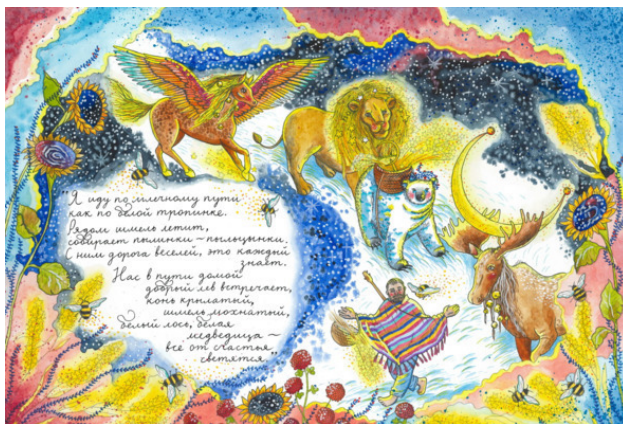 "Я иду по млечному пути
как по белой тропинке.
Рядом шмель летит,
собирает пылинки – пыльцынки.
С ним дорога веселей, это каждый
знает.
Нас в пути домой
добрый лев встречает,
конь крылатый,
шмель мохнатый,
белый лось, белая
медведица –
все от счастья
светятся."